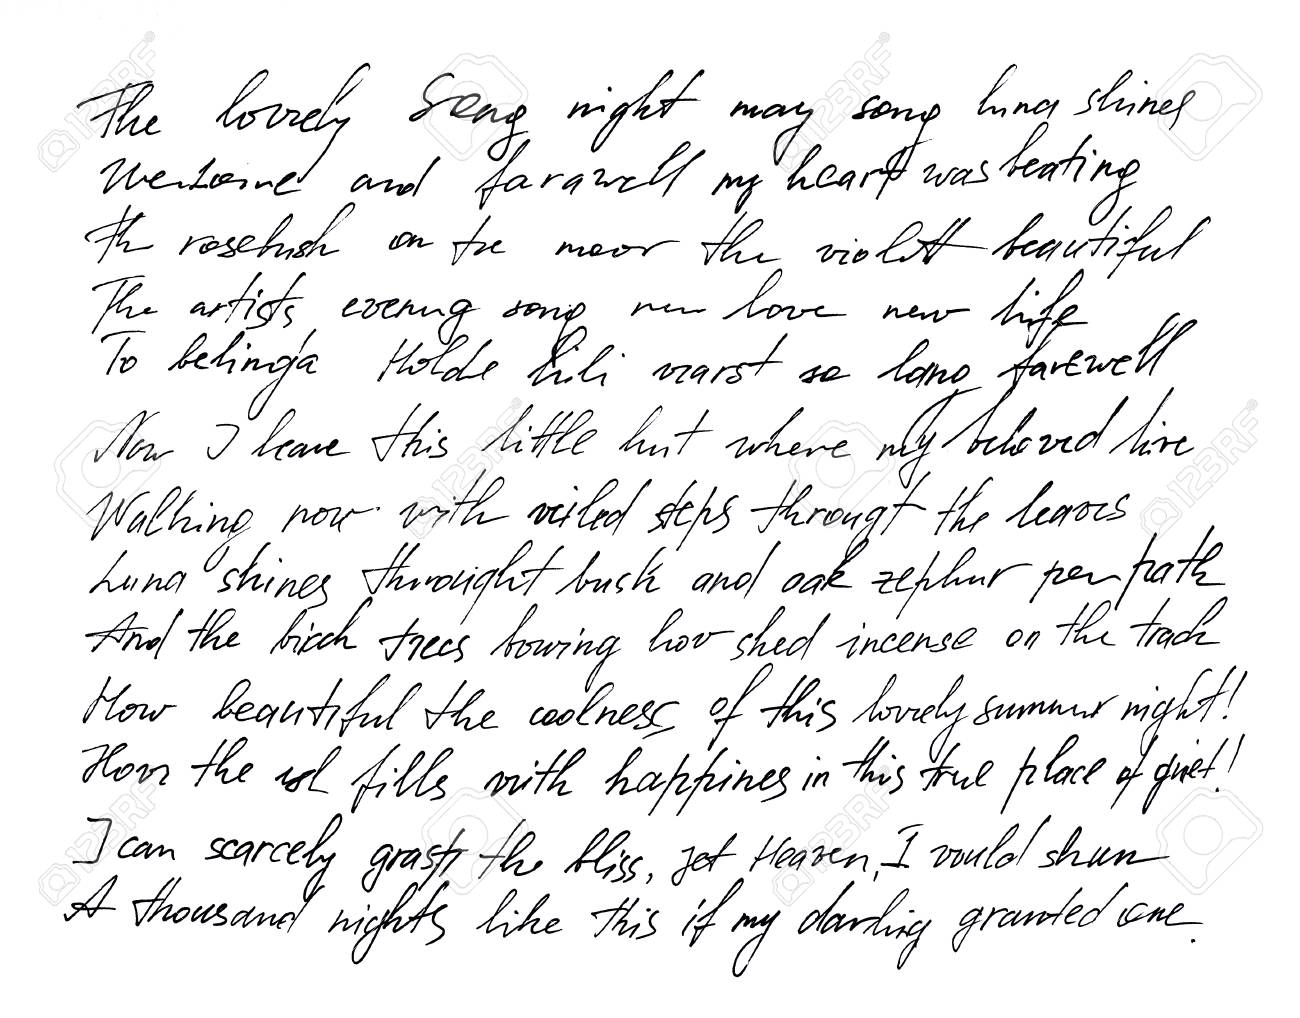 The lovely Song night may song luna shines
Welcome and farawell my heart was beating
Th rosebush on the moor the violett beautiful
The artists evening song new love new life
To belinda Holde Lili warst so lang farewell
Now I leave this little hut where my beloved live
Walking now with veiled steps througt the leaves
Luna shines throught busk and oak zephur per path
And the birch trees bowing low shed incense on the track
How beautiful the coolness of this lovely summer night!
How the fills with happines in this true place of quiet!
I can scarcely grasp the bliss, yet Heaven, I would shun
A thousand nights like this if my darling granted one.
123RF